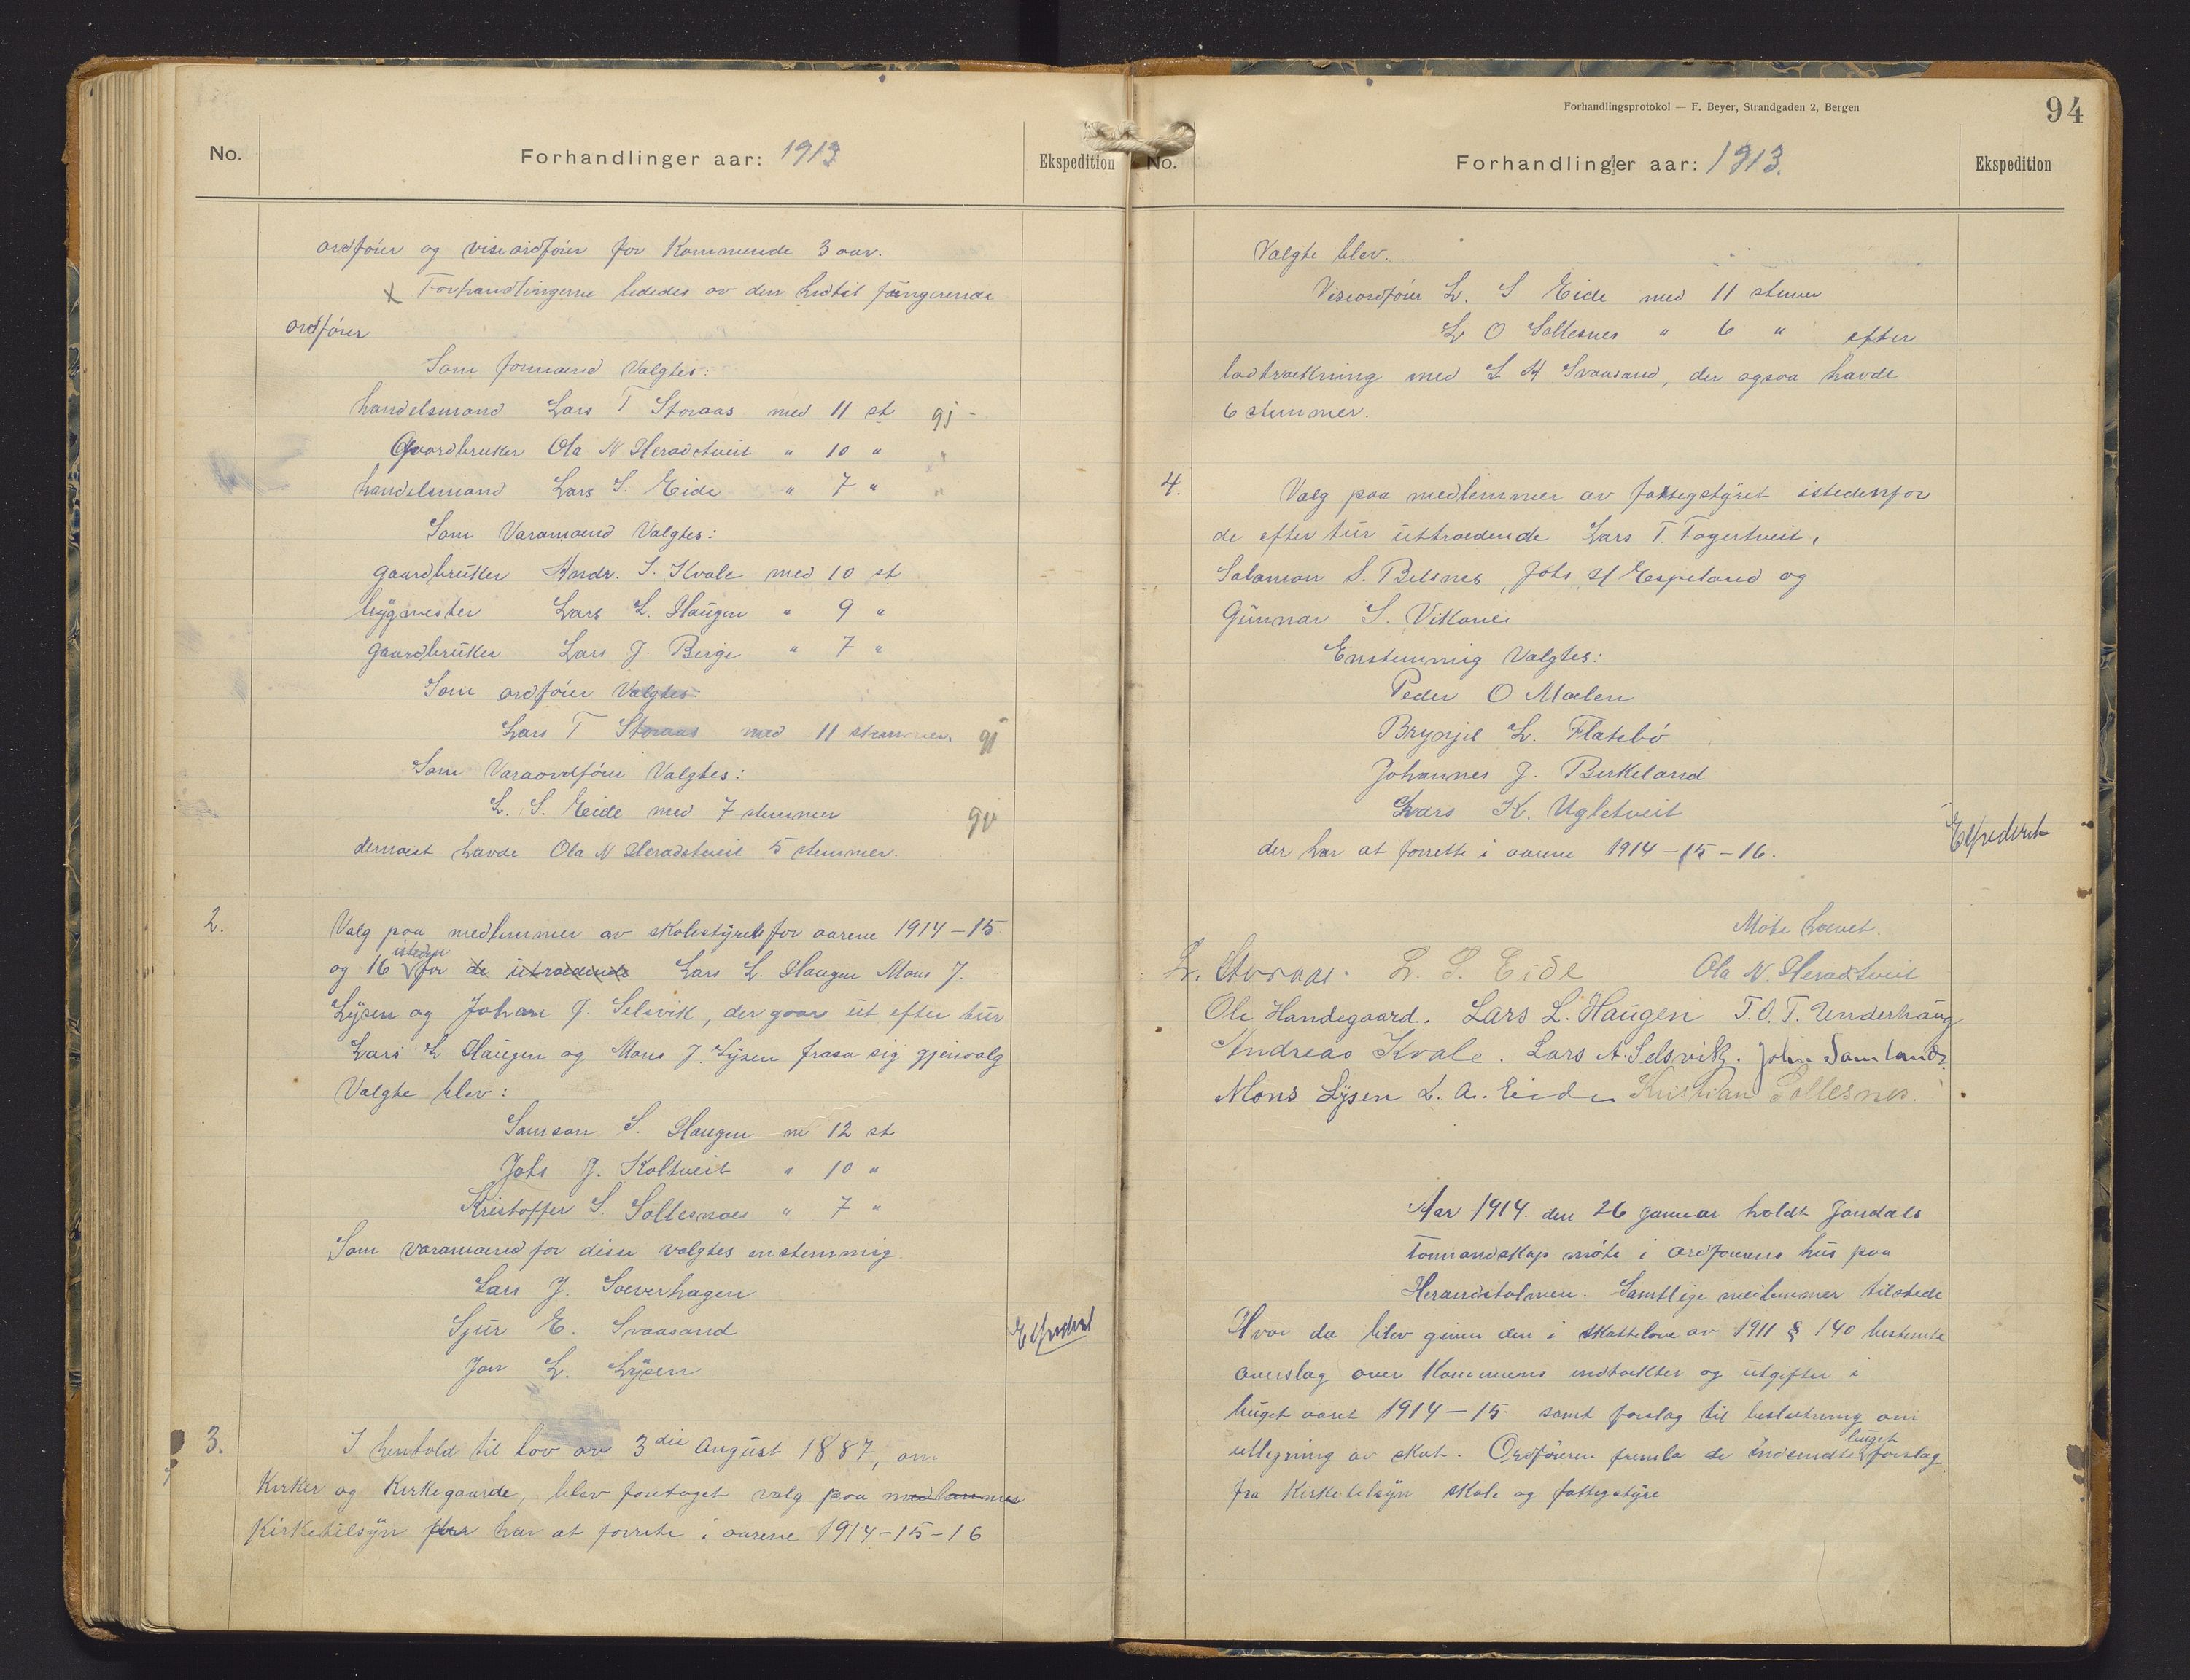 No.
Forhandlinger aar: 1913
Ekspedition
ordfóier og viseordfóier for Kommende 3 aar.
x Forhandlingerne lededes av den hidtil fungerende
ordfórer
Som formænd Valgtes:
handelsmand Lars T Storaas med 11 st gj -
Gaardbruker Ola N Heradstveit " 10 " "
handelsmand Lars S. Eide " 7 " "
Som Varamænd Valgtes:
gaardbruker Andr. S. Kvale med 10 st
bygmester Lars L. Haugen " 9 "
gaardbruker Lars J. Berge " 7 "
Som ordfóier Valgtes
Lars T Storaas med 11 stemmer gj
Som Varaordfóier Valgtes:
L. S. Eide med 7 stemmer gjv
dernæst havde Ola N Heradstveit 5 stemmer.
2.
Valg paa medlemmer av skolestyret for aarene 1914-15
og 16 istedenfor de utrædende Lars L. Haugen Mons J.
Lysen og Johan J. Selsvik, der gaar ut efter tur
Lars L Haugen og Mons J. Lysen frasa sig gjenvalg
Valgte blev:
Samson S. Haugen m 12 st
Johs J. Koltveit " 10 "
Kristoffer S. Sollesnæs " 7 "
Som varamænd for disse valgtes enstemmig
Lars J. Sæverhagen
Sjur E. Svaasand
Jon L. Lysen
Expederet
3.
I henhold til lov av 3die August 1887, om
Kirker og Kirkegaarde, blev foretaget valg paa medlemmer
Kirketilsyn der har at forrette i aarene 1914-15-16
Forhandlingsprotokol — F. Beyer, Strandgaden 2, Bergen
94
No.
Forhandlinger aar: 1913.
Ekspedition
Valgte blev.
Viseordfóier L. S Eide med 11 stemmer
L O Sollesnes " 6 " efter
lodtrækning med L M Svaasand, der ogsaa havde
6 stemmer.
4.
Valg paa medlemmer av fattigstyret istedenfor
de efter tur uttrædende Lars T. Togertveit,
Salamon S. Belsnes, Johs H Espeland og
Gunnar S. Vikane
Enstemmig Valgtes:
Peder O Mælen
Brynjel L. Flatebó
Johannes J. Birkeland
Lars K. Ugletveit
der har at forrette i aarene 1914-15-16.
Expederet
Móte hævet.
L. Storaas. L. S. Eide Ola N. Heradstveit
Ole Handegaard. Lars L. Haugen T. O. T. Underhaug
Andreas Kvale. Lars A. Selsvik. John Samland.
Mons Lysen L. A. Eide Kristian Sollesnes.
Aar 1914. den 26 januar holdt Jondals
formandskap móte i ordfórerens hus paa
Herandsholmen. Samtlige medlemmer tilstede
Hvor da blev given den i skattelove av 1911 § 140 bestemte
overslag over Kommunens indtækter og utgifter i
buget aaret 1914-15 samt forslag til beslutning om
utlegning av skat. Ordfóreren fremla de indsendte buget forslag
fra Kirketilsyn skole og fattigstyre